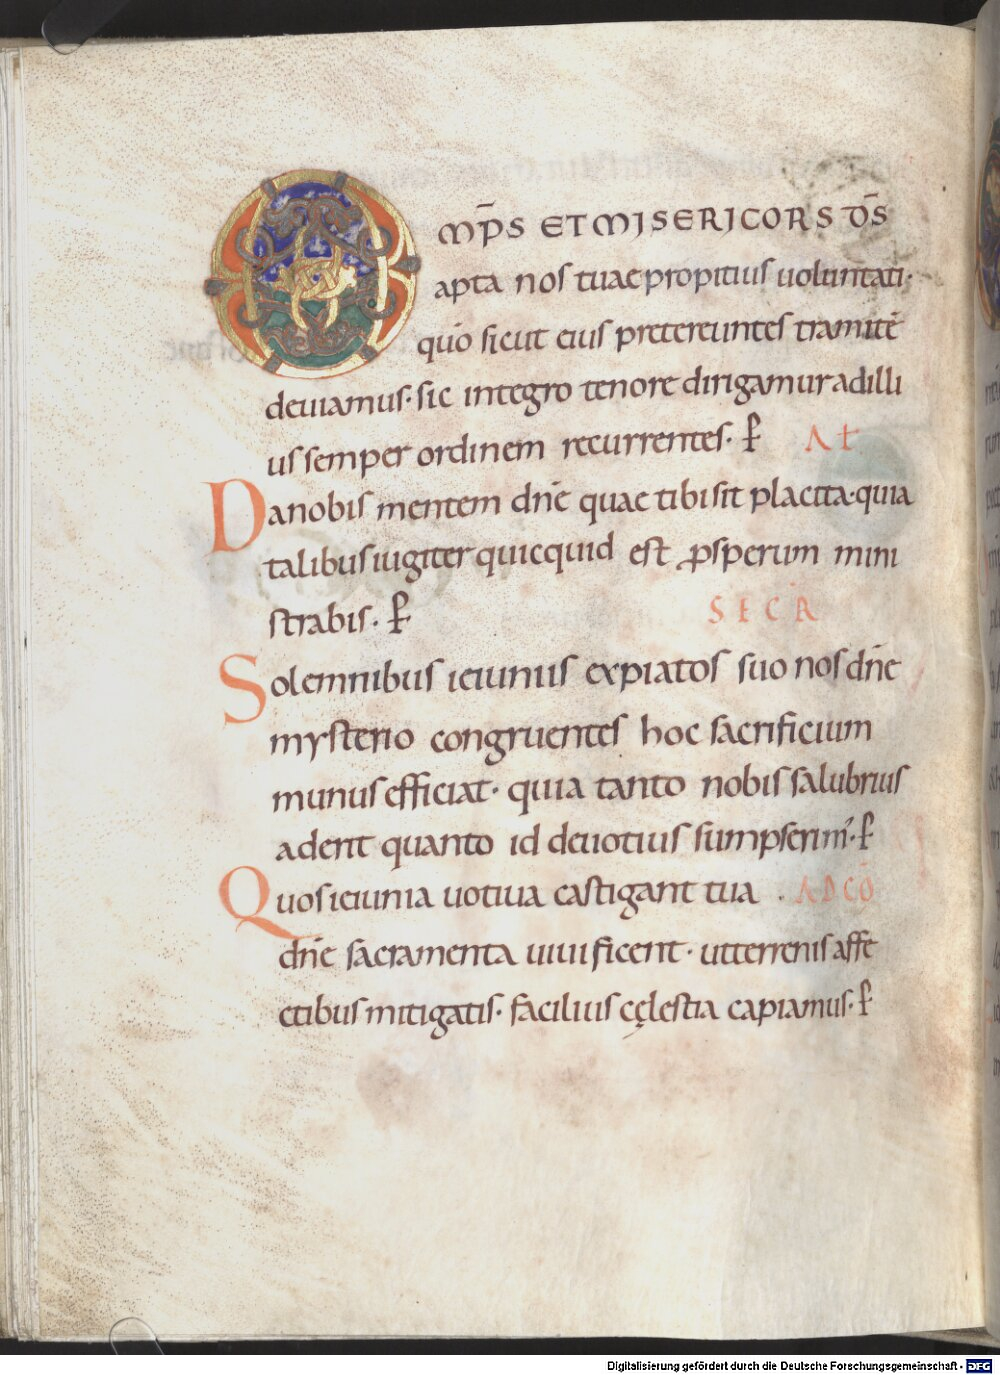 OMP̄S ET MISERICORS D̄S
apta nos tuae propitius uoluntati·
quō sicut eius pretereuntes tramitē
deuiamus· sic integro tenore dirigamur ad illi
us semper ordinem recurrentes· P̄ A t
Da nobis mentem dn̄e quae tibi sit placita· quia
talibus iugiter quicquid est ꝓsperum mini
strabis· P̄ SECR̄
Solemnibus ieiuniis expiatos suo nos dn̄e
mysterio congruentes hoc sacrificium
munus efficiat· quia tanto nobis salubrius
aderit quanto id deuotius sumpserim'· P̄
Quos ieiunia uotiua castigant tua · AD CŌ
dn̄e sacramenta uiuificent· ut terrenis affe
ctibus mitigatis· facilius cęlestia capiamus· P̄
Digitalisierung gefördert durch die Deutsche Forschungsgemeinschaft - DFG